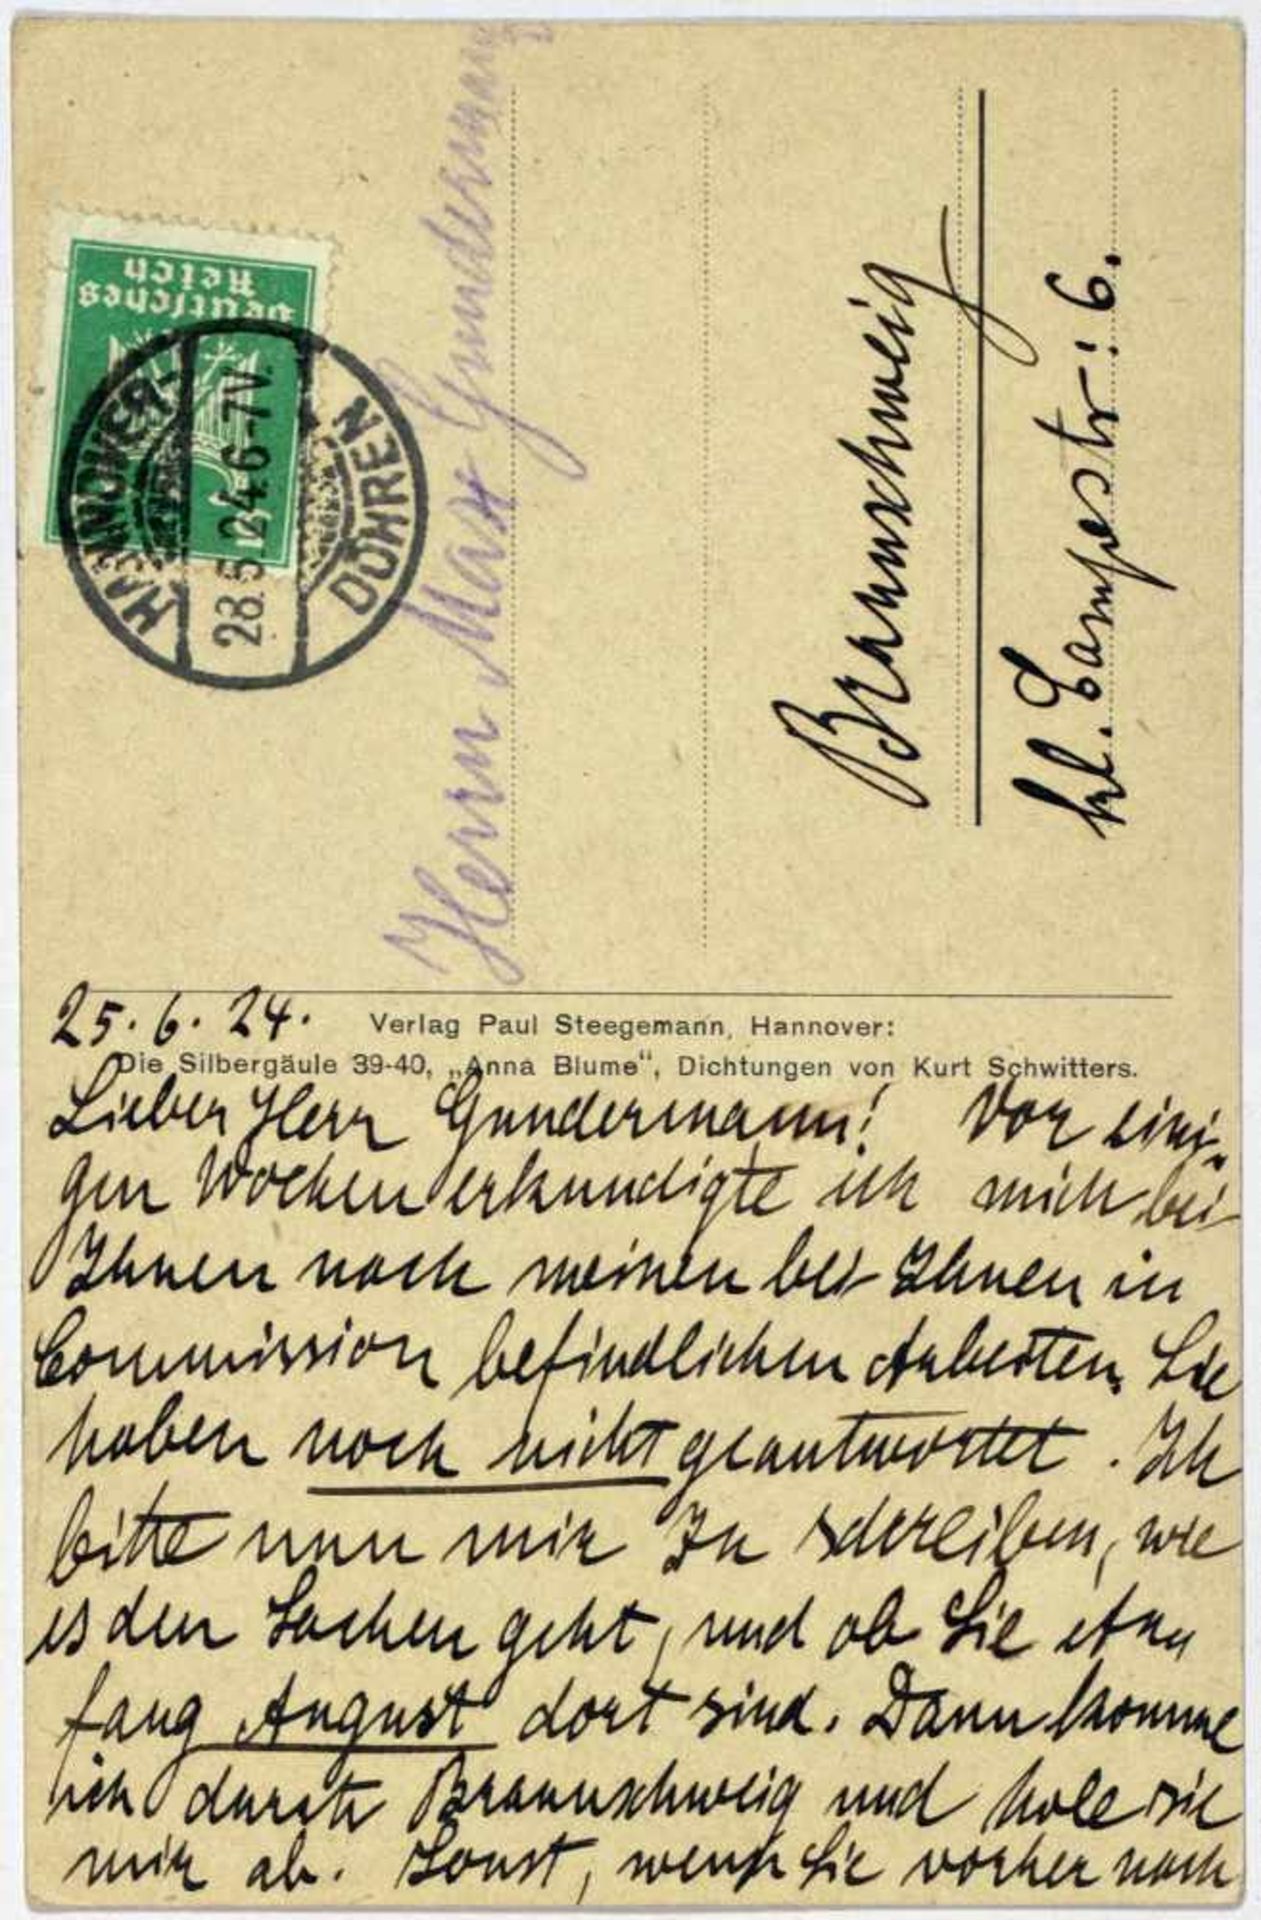 Deutsches
Reich
HANNOVER
28.5.24.6-7V.
DÖHREN
Herrn Max Gundermann
Braunschweig
kl. Campestr: 6.
25.6.24.
Verlag Paul Steegemann, Hannover:
Die Silbergäule 39-40, „Anna Blume“, Dichtungen von Kurt Schwitters.
Lieber Herr Gundermann! Vor eini-
gen Wochen erkundigte ich mich bei
Ihnen nach meinen bei Ihnen in
Commission befindlichen Arbeiten. Sie
haben noch nicht geantwortet. Ich
bitte nun mir zu schreiben, wie
es den Sachen geht, und ob Sie An
fang August dort sind. Dann komme
ich durch Braunschweig und hole sie
mir ab. Sonst, wenn Sie vorher nach